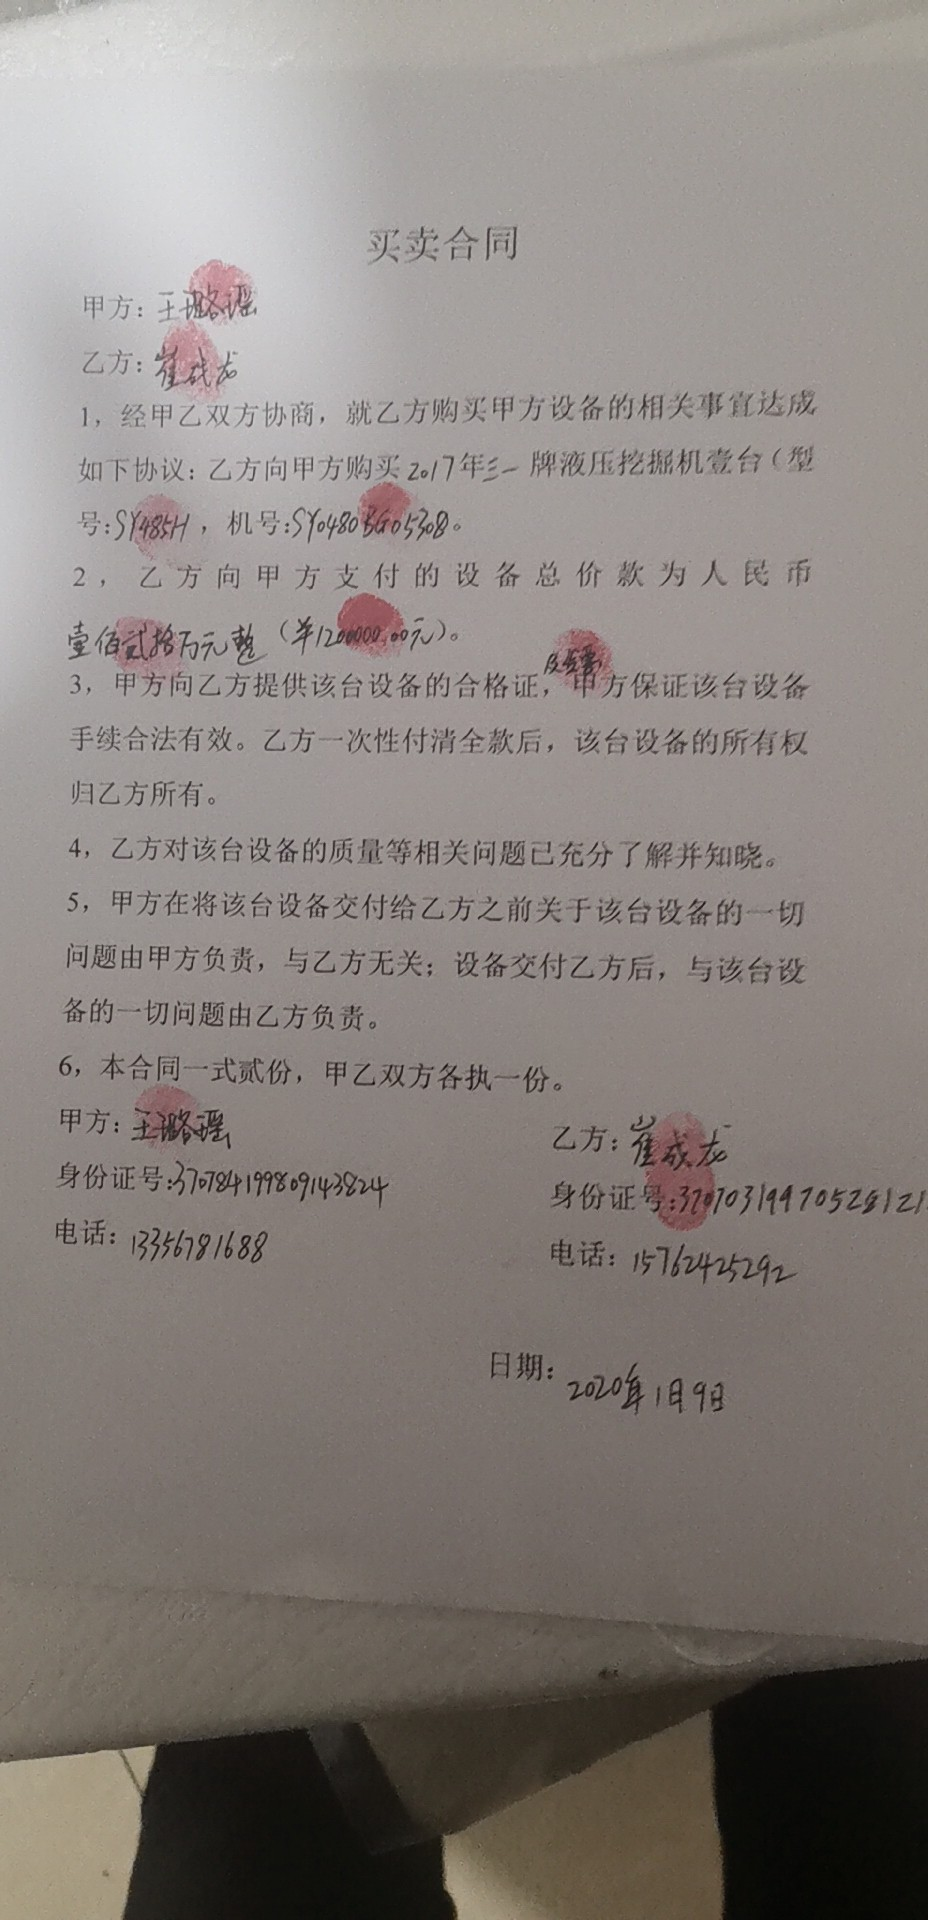 买卖合同
甲方：王璐瑶
乙方：崔成龙
1，经甲乙双方协商，就乙方购买甲方设备的相关事宜达成
如下协议：乙方向甲方购买2017年三一牌液压挖掘机壹台（型
号:SY485H，机号:SY0480BG05308。
2，乙方向甲方支付的设备总价款为人民币
壹佰贰拾万元整（羊1200000.00元）。
及发票
3，甲方向乙方提供该台设备的合格证，甲方保证该台设备
手续合法有效。乙方一次性付清全款后，该台设备的所有权
归乙方所有。
4，乙方对该台设备的质量等相关问题已充分了解并知晓。
5，甲方在将该台设备交付给乙方之前关于该台设备的一切
问题由甲方负责，与乙方无关；设备交付乙方后，与该台设
备的一切问题由乙方负责。
6，本合同一式贰份，甲乙双方各执一份。
甲方：王璐瑶
乙方：崔成龙
身份证号:370784199809143824
身份证号:37070319970528121
电话：13356781688
电话：15762425292
日期：2020年1月9日